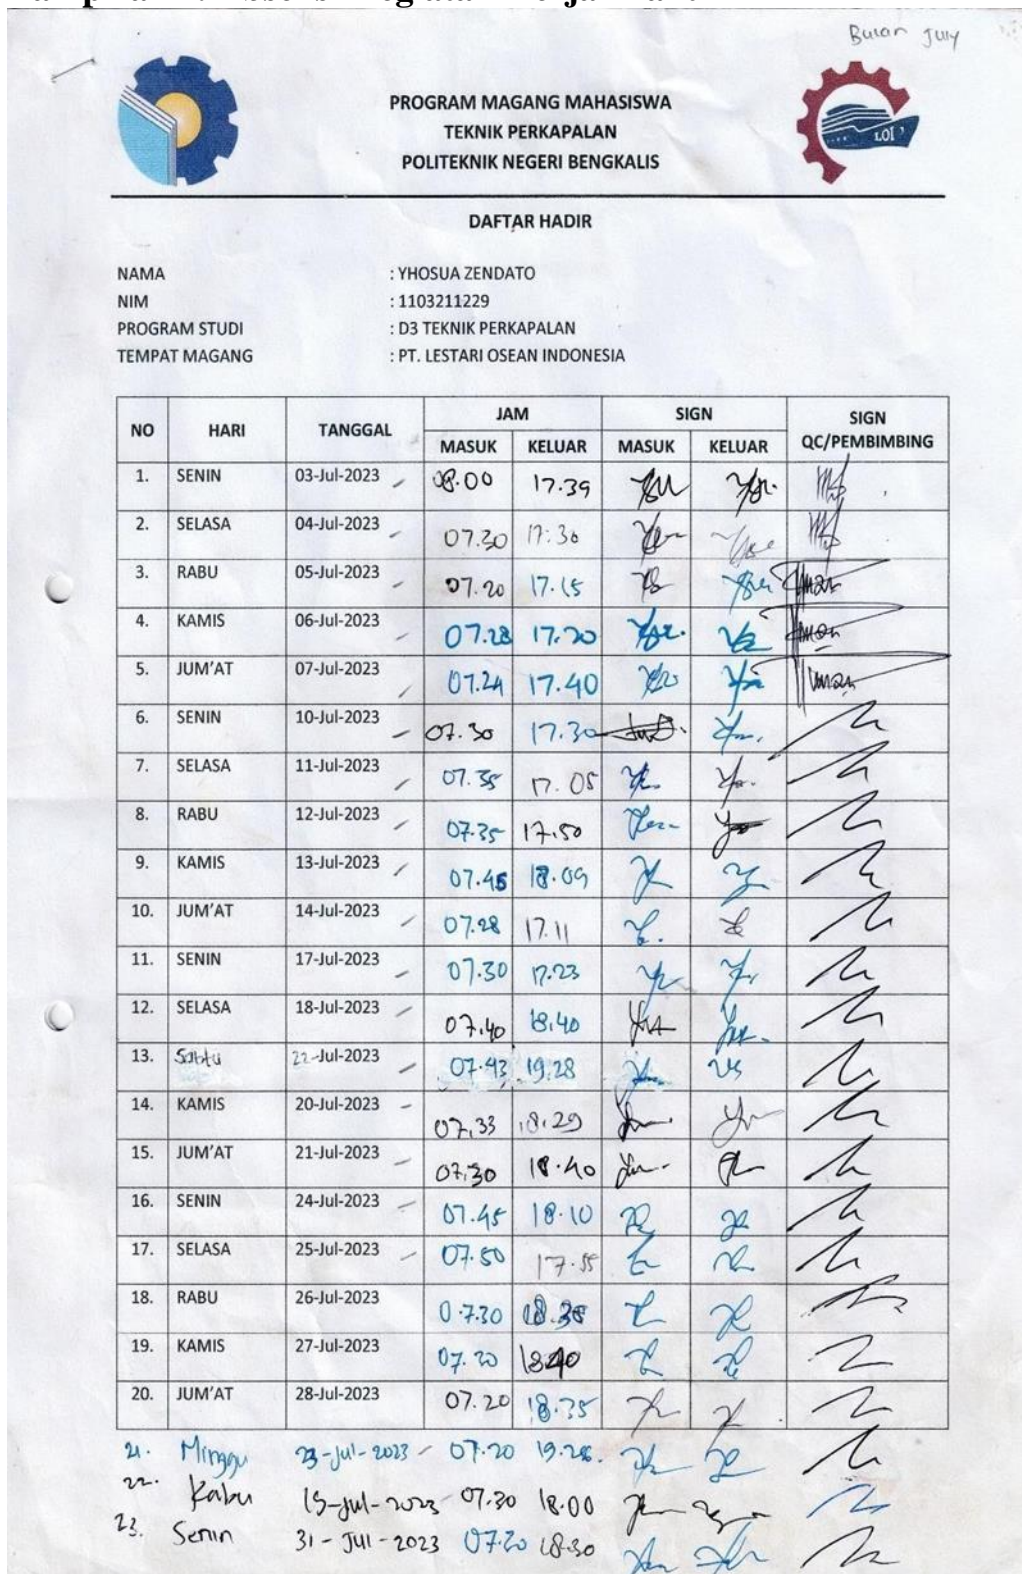 Bulan July
LOI
PROGRAM MAGANG MAHASISWA
TEKNIK PERKAPALAN
POLITEKNIK NEGERI BENGKALIS
DAFTAR HADIR
NAMA : YHOSUA ZENDATO
NIM : 1103211229
PROGRAM STUDI : D3 TEKNIK PERKAPALAN
TEMPAT MAGANG : PT. LESTARI OSEAN INDONESIA
NO HARI TANGGAL JAM SIGN SIGN QC/PEMBIMBING
MASUK KELUAR MASUK KELUAR
1. SENIN 03-Jul-2023 08.00 17.39
2. SELASA 04-Jul-2023 07.30 17:30
3. RABU 05-Jul-2023 07.20 17.15
4. KAMIS 06-Jul-2023 07.28 17.20
5. JUM'AT 07-Jul-2023 07.24 17.40
6. SENIN 10-Jul-2023 07.30 17.30
7. SELASA 11-Jul-2023 07.35 17.05
8. RABU 12-Jul-2023 07.35 17.50
9. KAMIS 13-Jul-2023 07.45 18.09
10. JUM'AT 14-Jul-2023 07.28 17.11
11. SENIN 17-Jul-2023 07.30 17.23
12. SELASA 18-Jul-2023 07.40 18.40
13. Sabtu 22-Jul-2023 07.43 19.28
14. KAMIS 20-Jul-2023 07.33 18.29
15. JUM'AT 21-Jul-2023 07.30 18.40
16. SENIN 24-Jul-2023 07.45 18.10
17. SELASA 25-Jul-2023 07.50 17.55
18. RABU 26-Jul-2023 07.30 18.38
19. KAMIS 27-Jul-2023 07.20 18.40
20. JUM'AT 28-Jul-2023 07.20 18.35
21. Minggu 23-Jul-2023 07.20 19.28
22. Rabu 19-Jul-2023 07.30 18.00
23. Senin 31-Jul-2023 07.20 18.30